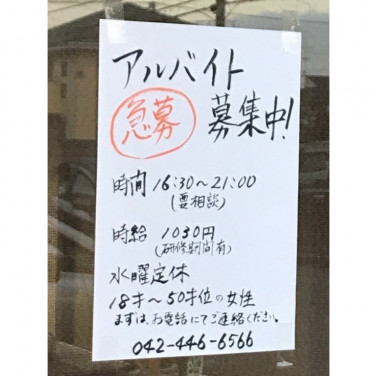 アルバイト
急募 募集中!
時間 16:30〜21:00
(要相談)
時給 1030円
(研修期間有)
水曜定休
18才〜50才位の女性
まずは、お電話にてご連絡ください。
042-446-6566